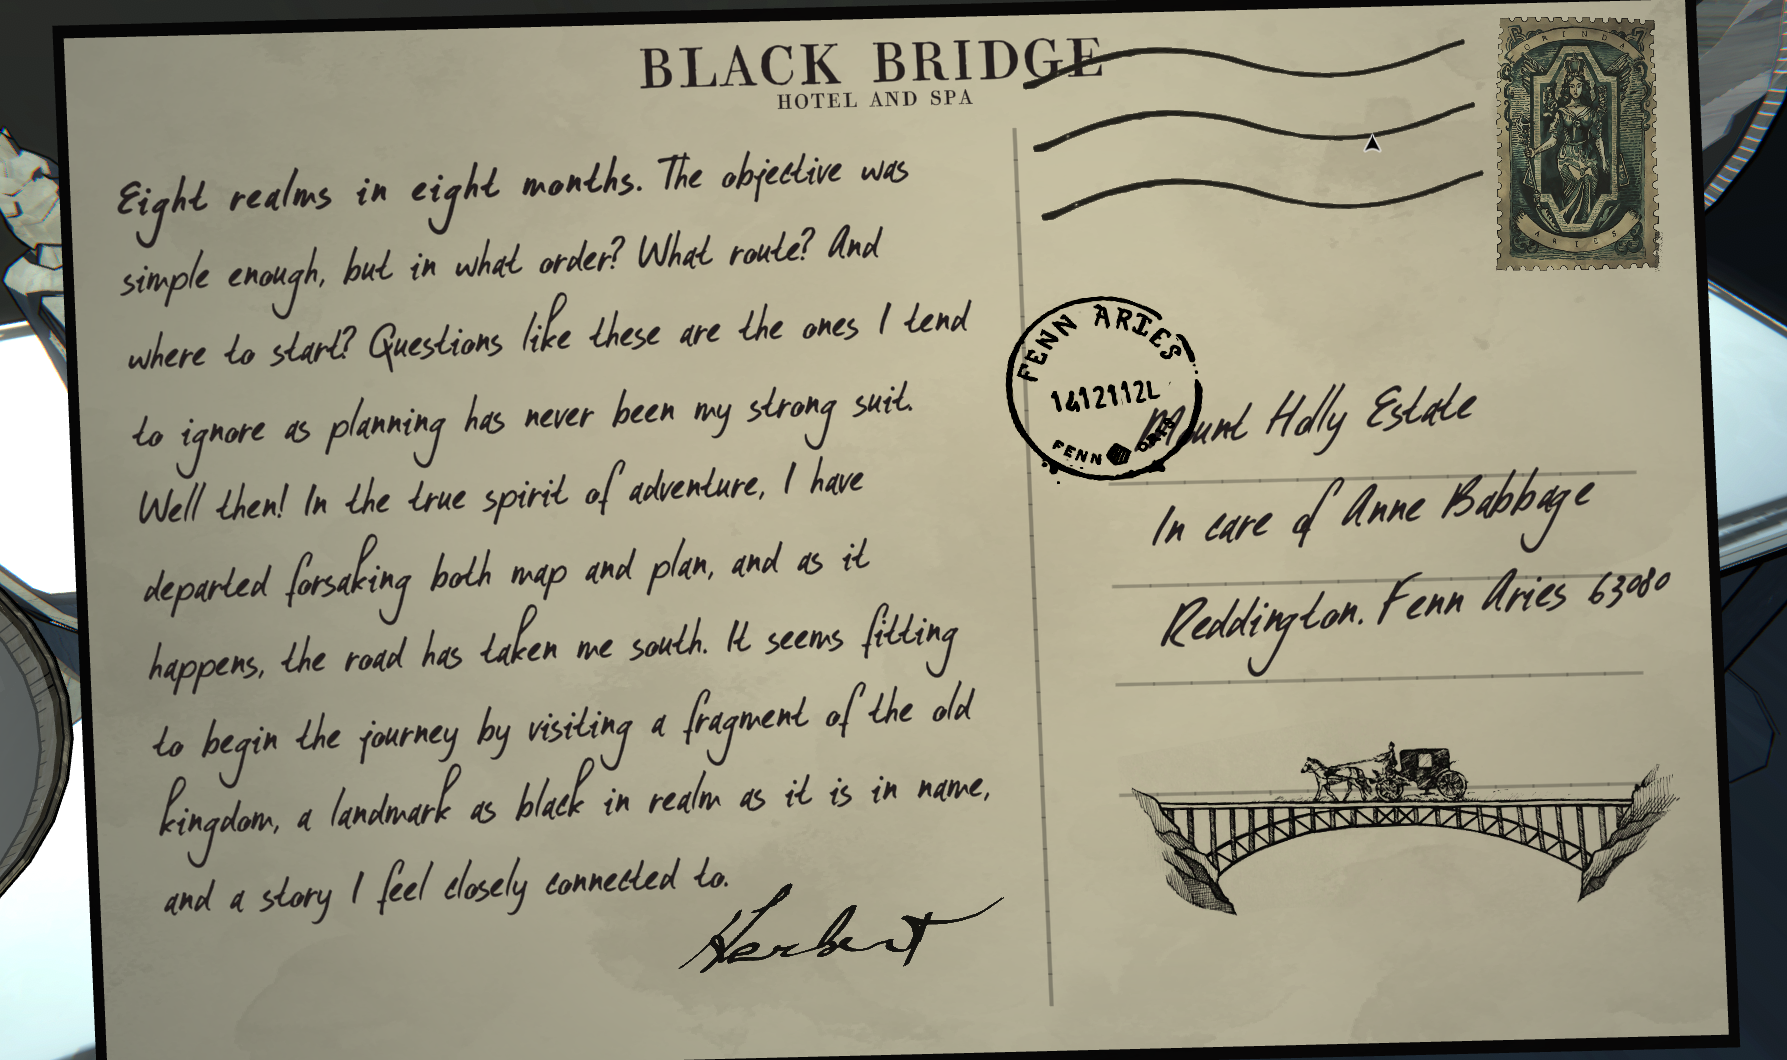 BLACK BRIDGE
HOTEL AND SPA
Eight realms in eight months. The objective was
simple enough, but in what order? What route? And
where to start? Questions like these are the ones I tend
to ignore as planning has never been my strong suit.
Well then! In the true spirit of adventure, I have
departed forsaking both map and plan, and as it
happens, the road has taken me south. It seems fitting
to begin the journey by visiting a fragment of the old
kingdom, a landmark as black in realm as it is in name,
and a story I feel closely connected to.
Herbert
ORINDA
ARIES
FENN ARIES
FENN
Mount Holly Estate
In care of Anne Babbage
Reddington. Fenn Aries 63080